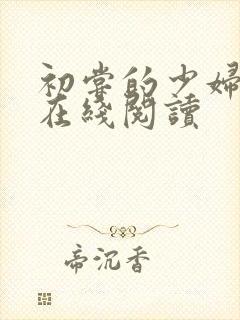 初嘗的少婦
在綫閱讀
帝沉香